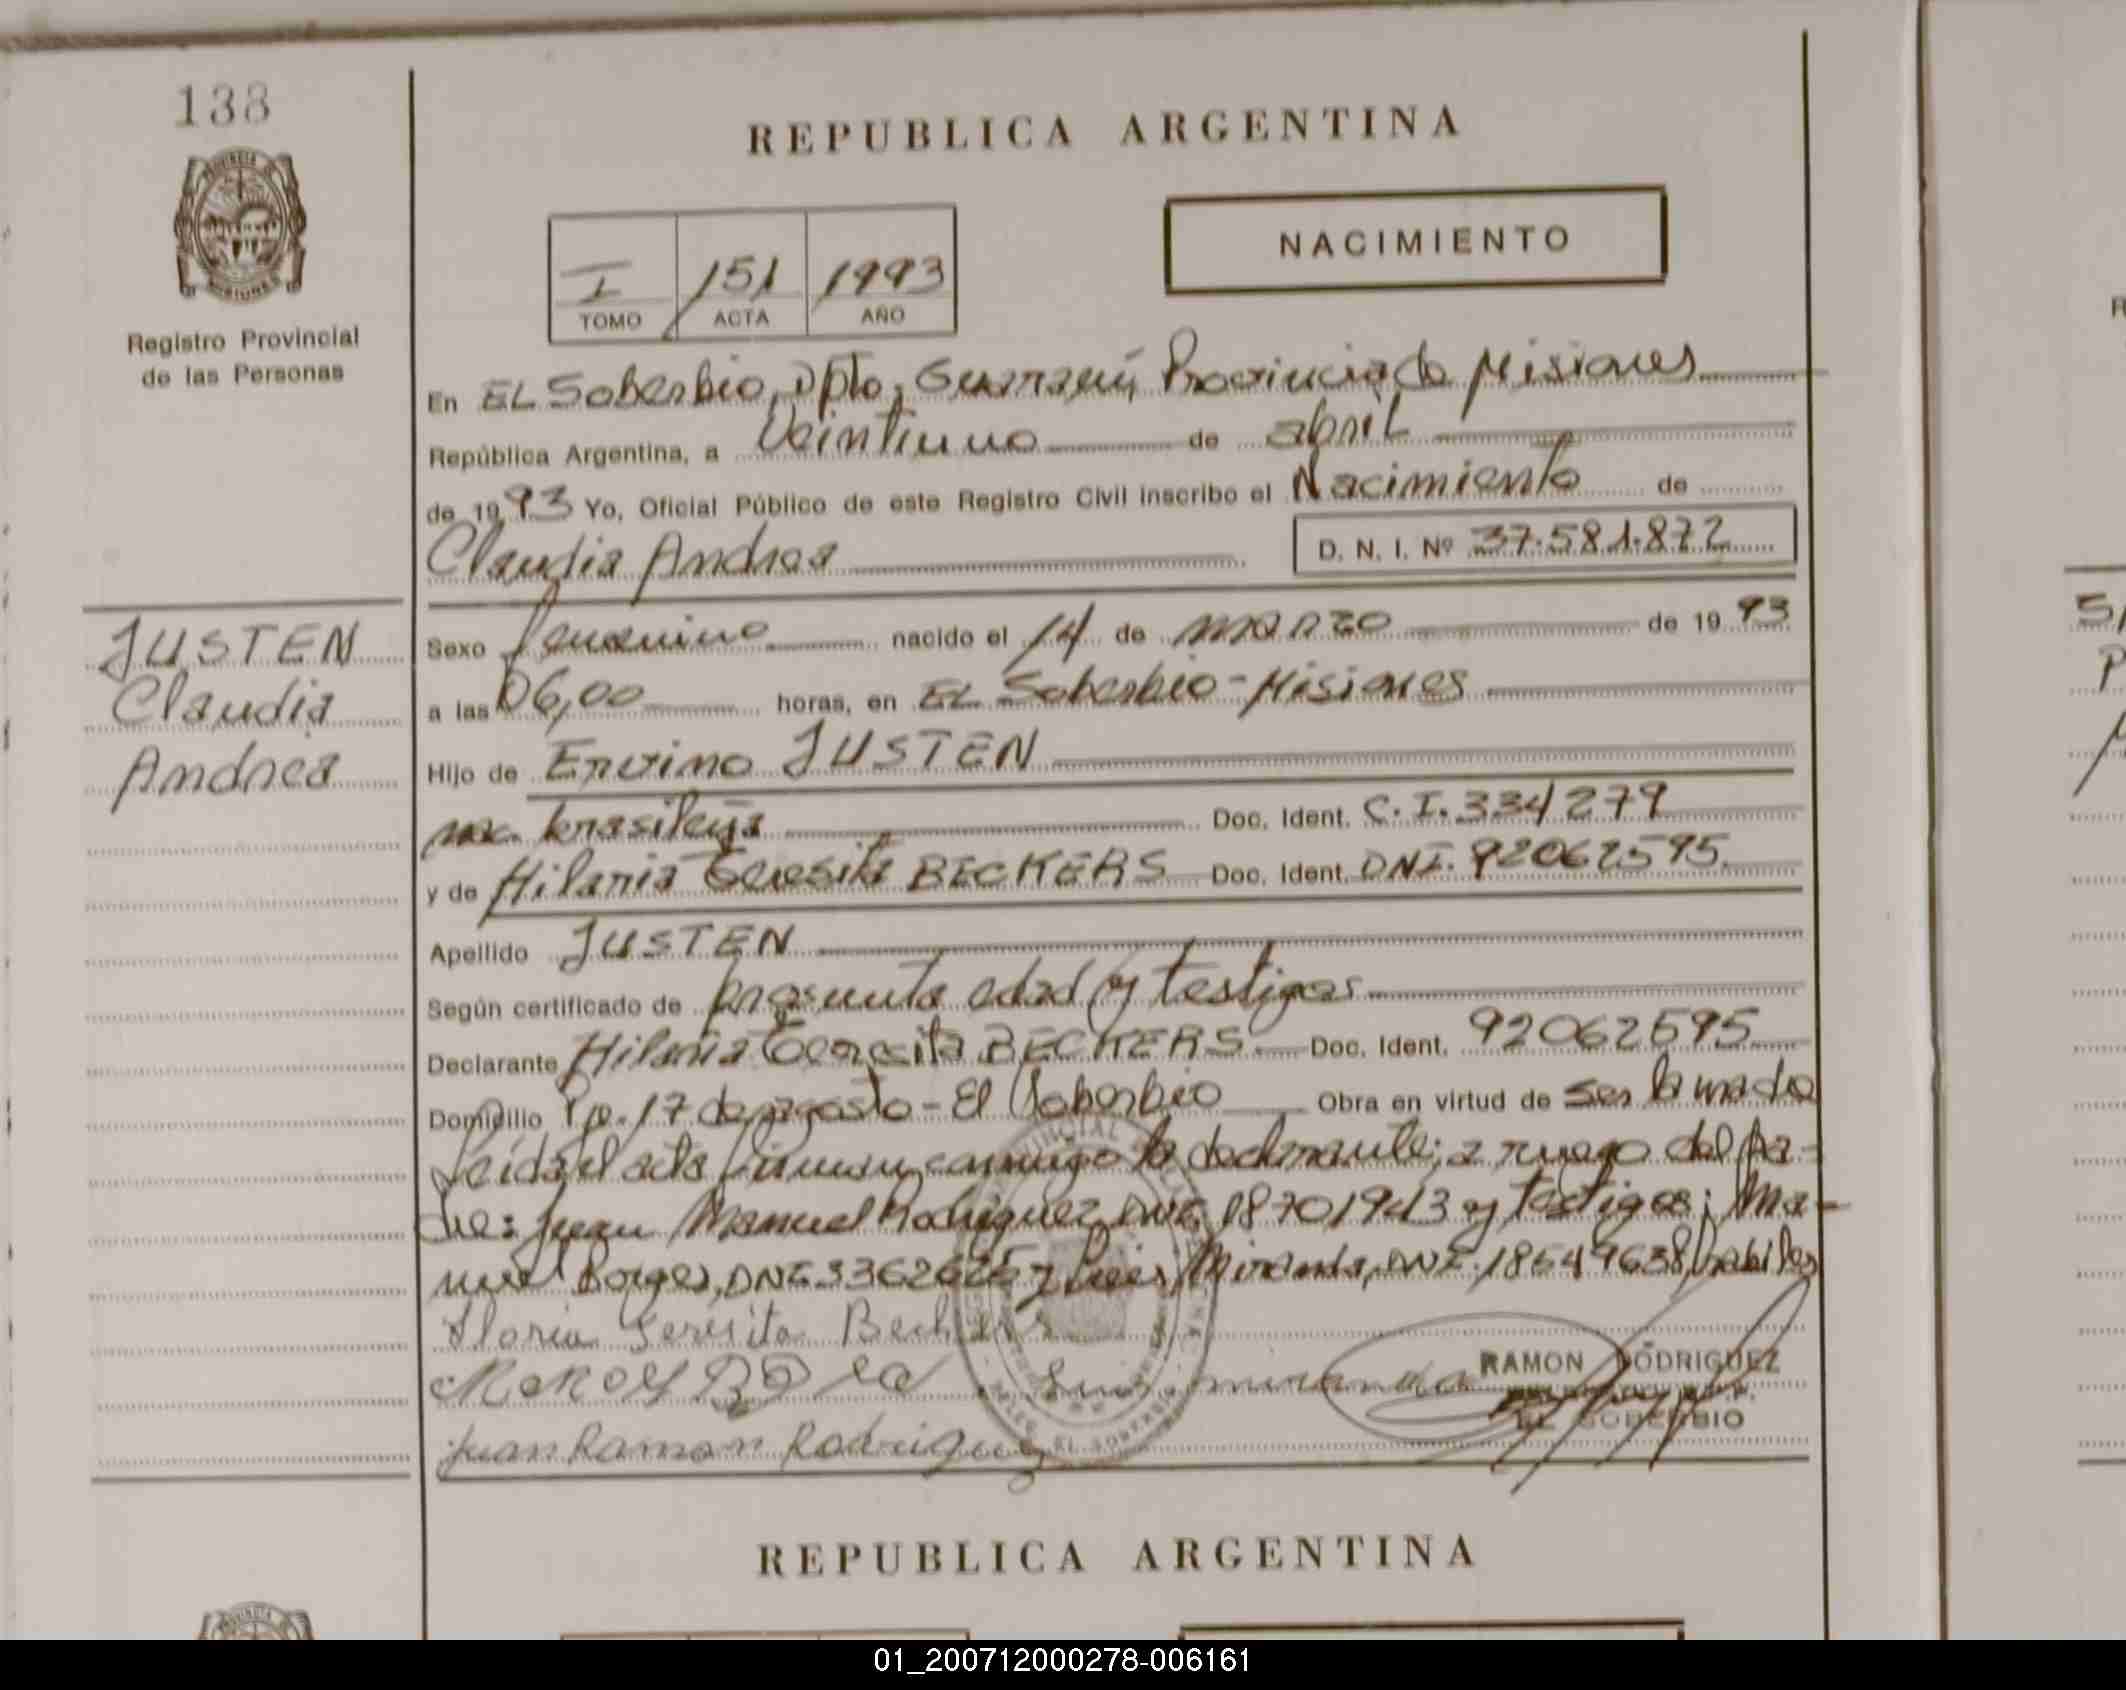 138
REPUBLICA ARGENTINA
NACIMIENTO
I 151 1993
TOMO ACTA AÑO
Registro Provincial
de las Personas
En EL Soberbio, Dpto. Guaraní, Provincia de Misiones
República Argentina, a Veintiuno de abril
de 1993 Yo, Oficial Público de este Registro Civil inscribo el Nacimiento de
Claudia Andrea D. N. I. Nº 37.581.872
JUSTEN
Claudia
Andrea
Sexo femenino nacido el 14 de marzo de 1993
a las 06,00 horas, en EL Soberbio-Misiones
Hijo de Ervino JUSTEN
nac. brasileña Doc. Ident. C.I. 334279
y de Hilaria Teresita BECKERS Doc. Ident. DNI. 92062595
Apellido JUSTEN
Según certificado de presunta edad y testigos
Declarante Hilaria Teresita BECKERS Doc. Ident. 92062595
Domicilio Pje. 17 de agosto - El Soberbio Obra en virtud de ser la madre
Leída el acta firman conmigo la declarante; a ruego del pa-
dre: Juan Manuel Rodriguez DNI. 18701943 y testigos: Ma-
nuel Borges, DNI. y Luis Miranda, DNI. 18549638 habiles
Ilaria Teresita Beckers
Luis miranda
RAMON RODRIGUEZ
EL SOBERBIO
Juan Ramon Rodriguez
REPUBLICA ARGENTINA
01_200712000278-006161